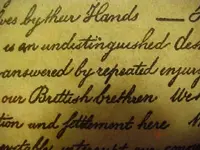 ves by their Hands —
is an undistinguished des
answered by repeated injury
our Brittish brethren We
tion and settlement here